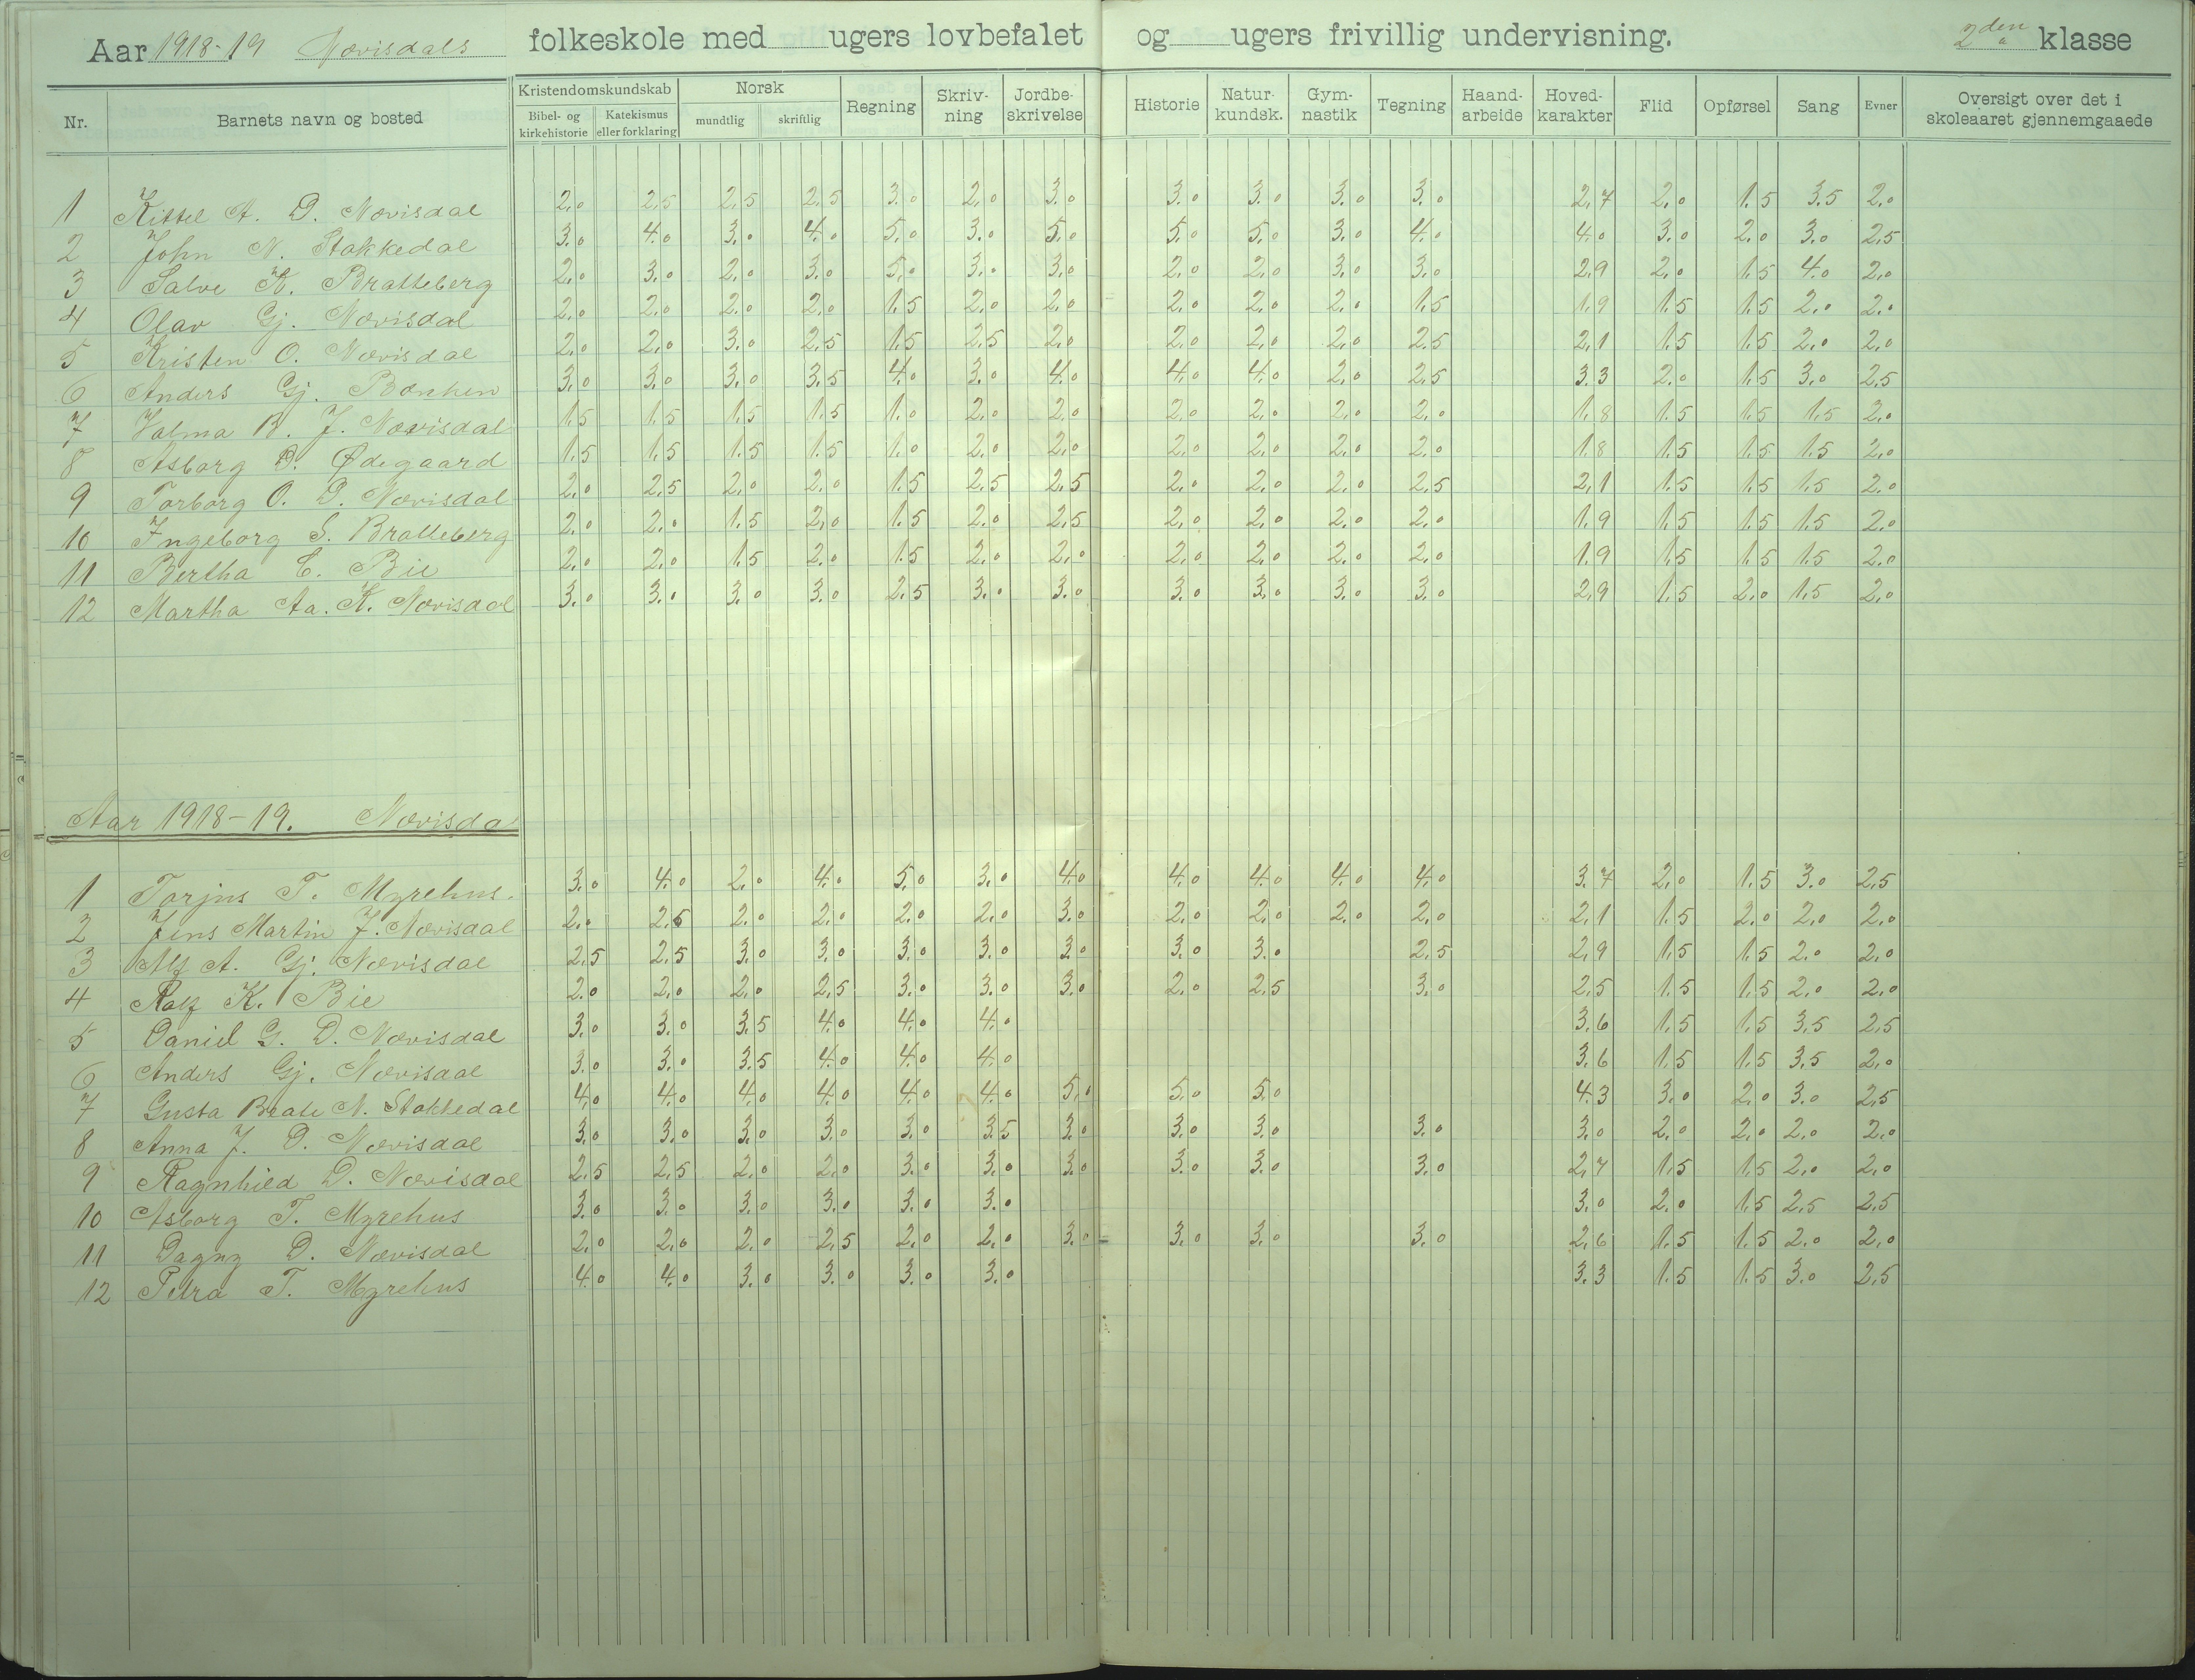 Aar 1918-19 Nævisdals folkeskole med ugers lovbefalet og ugers frivillig undervisning. 2den klasse
Nr. Barnets navn og bosted Kristendomskundskab Bibel- og kirkehistorie Katekismus eller forklaring Norsk mundtlig skriftlig Regning Skriv-ning Jordbe-skrivelse Historie Natur-kundsk. Gym-nastik Tegning Haand-arbeide Hoved-karakter Flid Opførsel Sang Evner Oversigt over det i skoleaaret gjennemgaaede
1 Kittel A. D. Nævisdal 2,0 2,5 2,5 2,5 3,0 2,0 3,0 3,0 3,0 3,0 3,0 2,7 2,0 1,5 3,5 2,0
2 John N. Stakkedal 3,0 4,0 3,0 4,0 5,0 3,0 5,0 5,0 5,0 3,0 4,0 4,0 3,0 2,0 3,0 2,5
3 Salve K. Bratteberg 2,0 3,0 2,0 3,0 5,0 3,0 3,0 2,0 2,0 3,0 3,0 2,9 2,0 1,5 4,0 2,0
4 Olav Gj. Nævisdal 2,0 2,0 2,0 2,0 1,5 2,0 2,0 2,0 2,0 2,0 1,5 1,9 1,5 1,5 2,0 2,0
5 Kristen O. Nævisdal 2,0 2,0 3,0 2,5 1,5 2,5 2,0 2,0 2,0 2,0 2,5 2,1 1,5 1,5 2,0 2,0
6 Anders Gj. 3,0 3,0 3,0 3,5 4,0 3,0 4,0 4,0 4,0 2,0 2,5 3,3 2,0 1,5 3,0 2,5
7 Valma B. J. Nævisdal 1,5 1,5 1,5 1,5 1,0 2,0 2,0 2,0 2,0 2,0 2,0 1,8 1,5 1,5 1,5 2,0
8 Asborg D. Ødegaard 1,5 1,5 1,5 1,5 1,0 2,0 2,0 2,0 2,0 2,0 2,0 1,8 1,5 1,5 1,5 2,0
9 Torborg O. D. Nævisdal 2,0 2,5 2,0 2,0 1,5 2,5 2,5 2,0 2,0 2,0 2,5 2,1 1,5 1,5 1,5 2,0
10 Ingeborg S. Bratteberg 2,0 2,0 1,5 2,0 1,5 2,0 2,5 2,0 2,0 2,0 2,0 1,9 1,5 1,5 1,5 2,0
11 Bertha C. Bie 2,0 2,0 1,5 2,0 1,5 2,0 2,0 2,0 2,0 2,0 2,0 1,9 1,5 1,5 1,5 2,0
12 Martha Aa. K. Nævisdal 3,0 3,0 3,0 3,0 2,5 3,0 3,0 3,0 3,0 3,0 3,0 2,9 1,5 2,0 1,5 2,0
Aar 1918-19. Nævisda
1 Torjus T. Myrehus. 3,0 4,0 2,0 4,0 5,0 3,0 4,0 4,0 4,0 4,0 4,0 3,7 2,0 1,5 3,0 2,5
2 Jens Martin J. Nævisdal 2,0 2,5 2,0 2,0 2,0 2,0 3,0 2,0 2,0 2,0 2,0 2,1 1,5 2,0 2,0 2,0
3 Alf A. Gj. Nævisdal 2,5 2,5 3,0 3,0 3,0 3,0 3,0 3,0 3,0 2,5 2,9 1,5 1,5 2,0 2,0
4 Ralf K. Bie 2,0 2,0 2,0 2,5 3,0 3,0 3,0 2,0 2,5 3,0 2,5 1,5 1,5 2,0 2,0
5 Daniel G. D. Nævisdal 3,0 3,0 3,5 4,0 4,0 4,0 3,6 1,5 1,5 3,5 2,5
6 Anders Gj. Nævisdal 3,0 3,0 3,5 4,0 4,0 4,0 3,6 1,5 1,5 3,5 2,0
7 Gusta Beate N. Stakkedal 4,0 4,0 4,0 4,0 4,0 4,0 5,0 5,0 5,0 4,3 3,0 2,0 3,0 2,5
8 Anna J. D. Nævisdal 3,0 3,0 3,0 3,0 3,0 3,5 3,0 3,0 3,0 3,0 3,0 2,0 2,0 2,0 2,0
9 Ragnhild D. Nævisdal 2,5 2,5 2,0 2,0 3,0 3,0 3,0 3,0 3,0 3,0 2,7 1,5 1,5 2,0 2,0
10 Asborg T. Myrehus 3,0 3,0 3,0 3,0 3,0 3,0 3,0 2,0 1,5 2,5 2,5
11 Dagny D. Nævisdal 2,0 2,0 2,0 2,5 2,0 2,0 3,0 3,0 3,0 3,0 2,6 1,5 1,5 2,0 2,0
12 Petra T. Myrehus 4,0 4,0 3,0 3,0 3,0 3,0 3,3 1,5 1,5 3,0 2,5